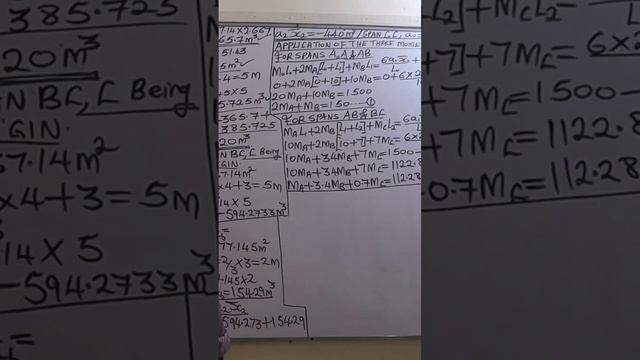 385.725
20m³
N BC, C Being
GIN.
57.14m²
x4+3=5m
14 x 5
-594.2733m³
.14 x 2.667
65.7m³
51.43
5m²
-4=5m
+5 x 5
5.725m³
-365.7+
385.725
20m³
N BC, C Being
GIN.
57.14m²
x4+3=5m
14 x 5
-594.2733m³
77.145m²
=2/3 x 3=2m
.145 x 2
=154.29m³
594.273+154.29
a₂x̄₂=-440m³/SPAN
APPLICATION OF THE THREE MOME
FOR SPANS A₀A & AB
M₀L₀+2MA[L₀+L₁]+MBL₁=6a₁x̄₁+
0+2MA[0+10]+10MB=0+6x2
20MA+10MB=1500
2MA+MB=150---①
FOR SPANS AB & BC
MAL₁+2MB[L₁+L₂]+MCL₂=6a₁
10MA+2MB[10+7]+7MC=6x2
10MA+34MB+7MC=1500-
10MA+34MB+7MC=1122.8
MA+3.4MB+0.7MC=112.28
L₂]+MCL₂=
+7]+7MC=6x2
+7MC=1500
+7MC=1122.8
0.7MC=112.28